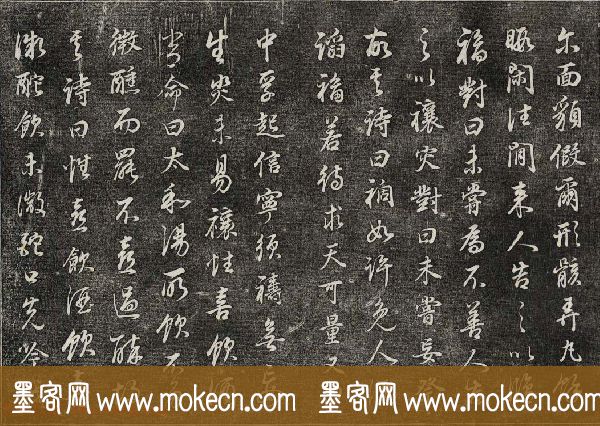 尔面貌假爾形骸弄丸餘
暇閑往閒来人告之以脩
福對曰未嘗為不善人告
之以禳灾對曰未嘗妄祭
故其詩曰禍如許免人
謟福若待求天可量又
中孚起信寧須禱無妄
生災未易禳性喜飲酒
嘗命曰太和湯所飲不多
微醺而罷不喜過醉故
其詩曰性喜飲酒飲喜
微酡飲未微酡口先吟
墨客网 www.mokecn.com 墨客网 www.mokecn.com